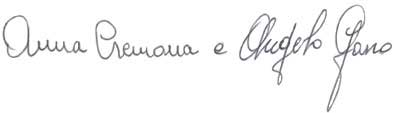 Anna Cremona e Angelo